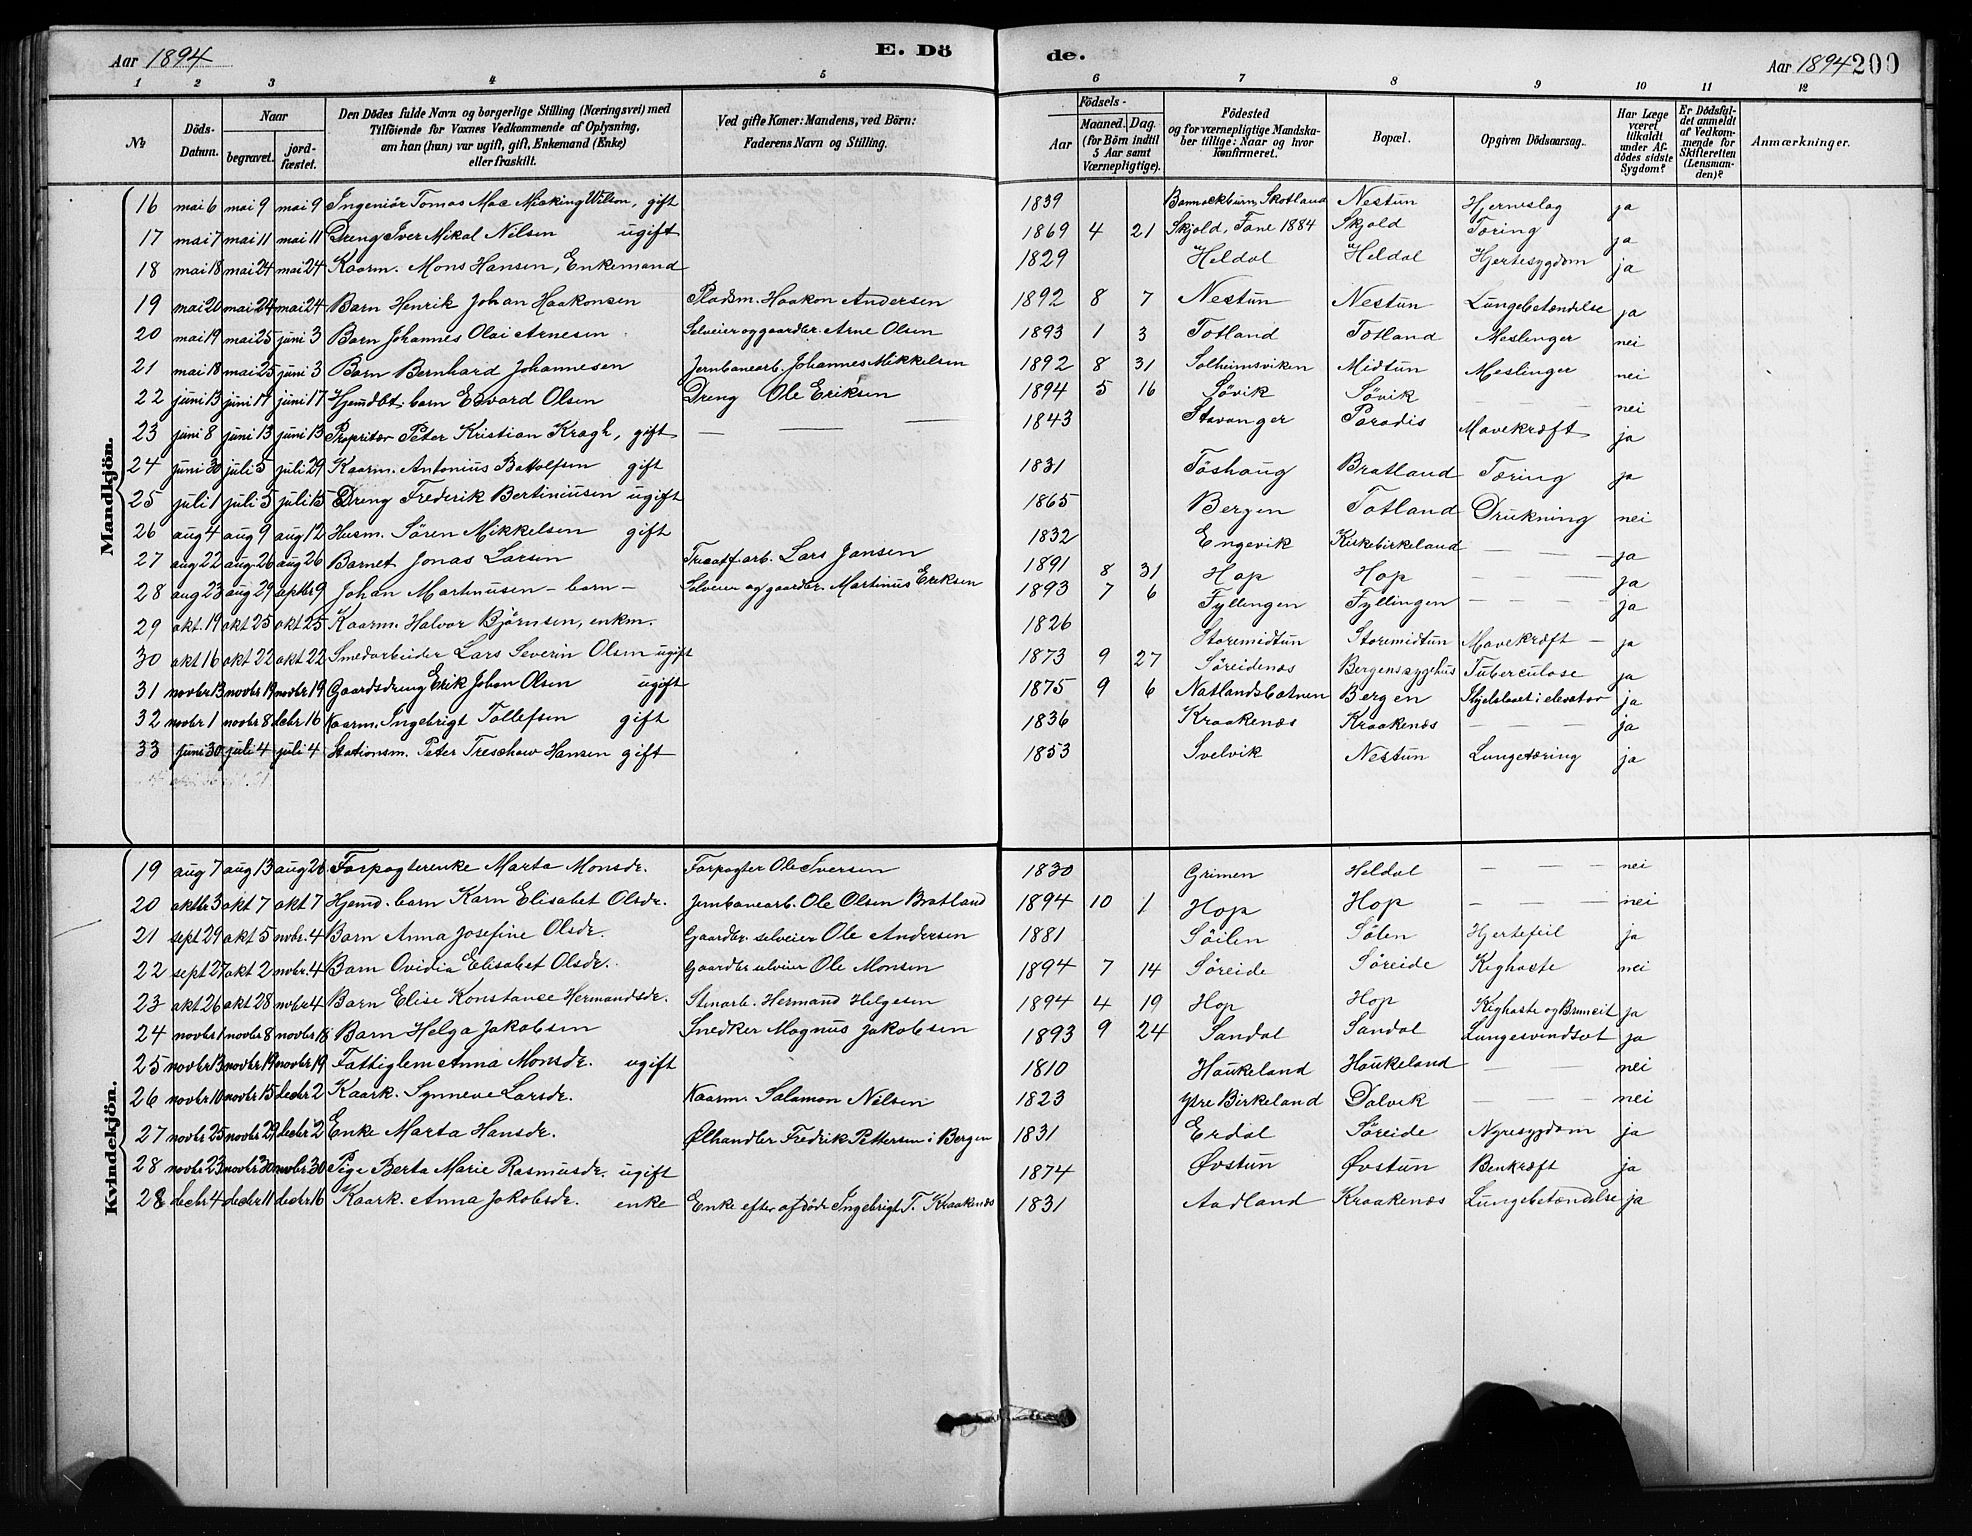 Aar 1894 E. Dö de. Aar 1894 200
1 2 3 4 5 6 7 8 9 10 11 12
№ Döds-Datum. Naar begravet. jord-fæstet. Den Dödes fulde Navn og borgerlige Stilling (Næringsvei) med Tilföiende for Voxnes Vedkommende af Oplysning, om han (hun) var ugift, gift, Enkemand (Enke) eller fraskilt. Ved gifte Koner: Mandens, ved Börn: Faderens Navn og Stilling. Födsels- Aar Maaned. Dag. (for Börn indtil 5 Aar samt Værnepligtige). Födested og for værnepligtige Mandskaber tillige: Naar og hvor Konfirmeret. Bopæl. Opgiven Dödsaarsag. Har Læge været tilkaldt under Afdödes sidste Sygdom? Er Dödsfaldet anmeldt af Vedkommende for Skifteretten (Lensmanden)? Anmærkninger.
Mandkjön.
16 mai 6 mai 9 mai 9 Ingeniör Tomas Mac Micking Wilson, gift 1839 Bannockburn, Skotland Nestun Hjerneslag ja
17 mai 7 mai 11 mai 11 Dreng Iver Mikal Nilsen ugift 1869 4 21 Skjold, Fane 1884 Skjold Tæring ja
18 mai 18 mai 24 mai 24 Kaarm. Mons Hansen, Enkemand 1829 Heldal Heldal Hjertesygdom ja
19 mai 20 mai 24 mai 24 Barn Henrik Johan Haakonsen Pladsm. Haakon Andersen 1892 8 7 Nestun Nestun Lungebetændelse ja
20 mai 19 mai 25 juni 3 Barn Johannes Olai Arnesen Selveier og gaardbr. Arne Olsen 1893 1 3 Totland Totland Meslinger nei
21 mai 18 mai 25 juni 3 Barn Bernhard Johannesen Jernbanearb. Johannes Mikkelsen 1892 8 31 Solheimsviken Midtun Meslinger nei
22 juni 13 juni 17 juni 17 Hjemdbt. barn Edvard Olsen Dreng Ole Eriksen 1894 5 16 Søvik Søvik — — nei
23 juni 8 juni 13 juni 13 Propritær Peter Kristian Kragh, gift — — — 1843 Stavanger Paradis Mavekræft ja
24 juni 30 juli 5 juli 29 Kaarm. Antonius Battolfsen gift 1831 Töshaug Bratland Tæring ja
25 juli 1 juli 5 juli 15 Dreng Frederik Bertiniussen ugift 1865 Bergen Totland Drukning nei
26 aug 4 aug 9 aug 12 Husm. Sören Mikkelsen gift 1832 Engevik Kirkebirkeland — — — ja
27 aug 22 aug 26 aug 26 Barnet Jonas Larsen Lars Jansen 1891 8 31 Hop Hop — — — ja
28 aug 23 aug 29 septbr 9 Johan Martinusen — barn — Selveier og gaardbr. Martinus Eriksen 1893 7 6 Fyllingen Fyllingen — — — ja
29 okt. 19 okt 25 okt 25 Kaarm. Halvor Björnsen, enkm. 1826 Storemidtun Storemidtun Mavekræft — ja
30 okt 16 okt 22 okt 22 Smedarbeider Lars Severin Olsen ugift 1873 9 27 Søreidenæs Bergens sygehus Tuberculose ja
31 novbr 13 novbr 19 novbr 19 Gaardsdreng Erik Johan Olsen ugift 1875 9 6 Natlandsbotnen Bergen Ihjelslaaet i elevator ja
32 novbr 1 novbr 8 decbr 16 Kaarm. Ingebrigt Tollefsen gift 1836 Kraakenæs Kraakenæs — — ja
33 juni 30 juli 4 juli 4 Stationsm. Peter Treschow Hansen gift 1853 Svelvik Nestun Lungetæring ja
Kvindekjön.
19 aug 7 aug 13 aug 26 Forpagterenke Marta Monsdr. Forpagter Ole Iversen 1830 Grimen Heldal — — — nei
20 oktbr 3 okt 7 okt 7 Hjemd. barn Karn Elisabet Olsdr. Jernbanearb. Ole Olsen Bratland 1894 10 1 Hop Hop — — — nei
21 sept 29 okt 5 novbr. 4 Barn Anna Josefine Olsdr. Gaardbr. selveier Ole Andersen 1881 Söilen Sölen Hjertefeil ja
22 sept 27 okt 2 novbr. 4 Barn Ovidia Elisabet Olsdr. Gaardbr selveier Ole Monsen 1894 7 14 Søreide Søreide Kighoste nei
23 okt 26 okt 28 novbr 4 Barn Elise Konstanse Hermandsdr. Stenarb. Hermand Helgesen 1894 4 19 Hop Hop Kighoste og Bronkit ja
24 novbr 1 novbr 8 novbr 18 Barn Helga Jakobsen Snedker Magnus Jakobsen 1893 9 24 Sandal Sandal Lungesvindsot ja
25 novbr 13 novbr 19 novbr 19 Fattiglem Anna Monsdr. ugift 1810 Haukeland Haukeland — — nei
26 novbr 10 novbr 15 decbr 2 Kaark. Synneve Larsdr. Kaarm. Salamon Nilsen 1823 Ytre Birkeland Dalvik — — — nei
27 novbr 25 novbr 29 decbr 2 Enke Marta Hansdr. Ølhandler Fredrik Pettersen i Bergen 1831 Erdal Søreide Nyresygdom ja
28 novbr 23 novbr 30 novbr 30 Pige Berta Marie Rasmusdr. ugift 1874 Øvstun Øvstun Benkræft ja
28 decbr 4 decbr 11 decbr 16 Kaark. Anna Jakobsdr. enke Enke efter afdöde Ingebrigt T. Kraakenæs 1831 Aadland Kraakenæs Lungebetændelse ja